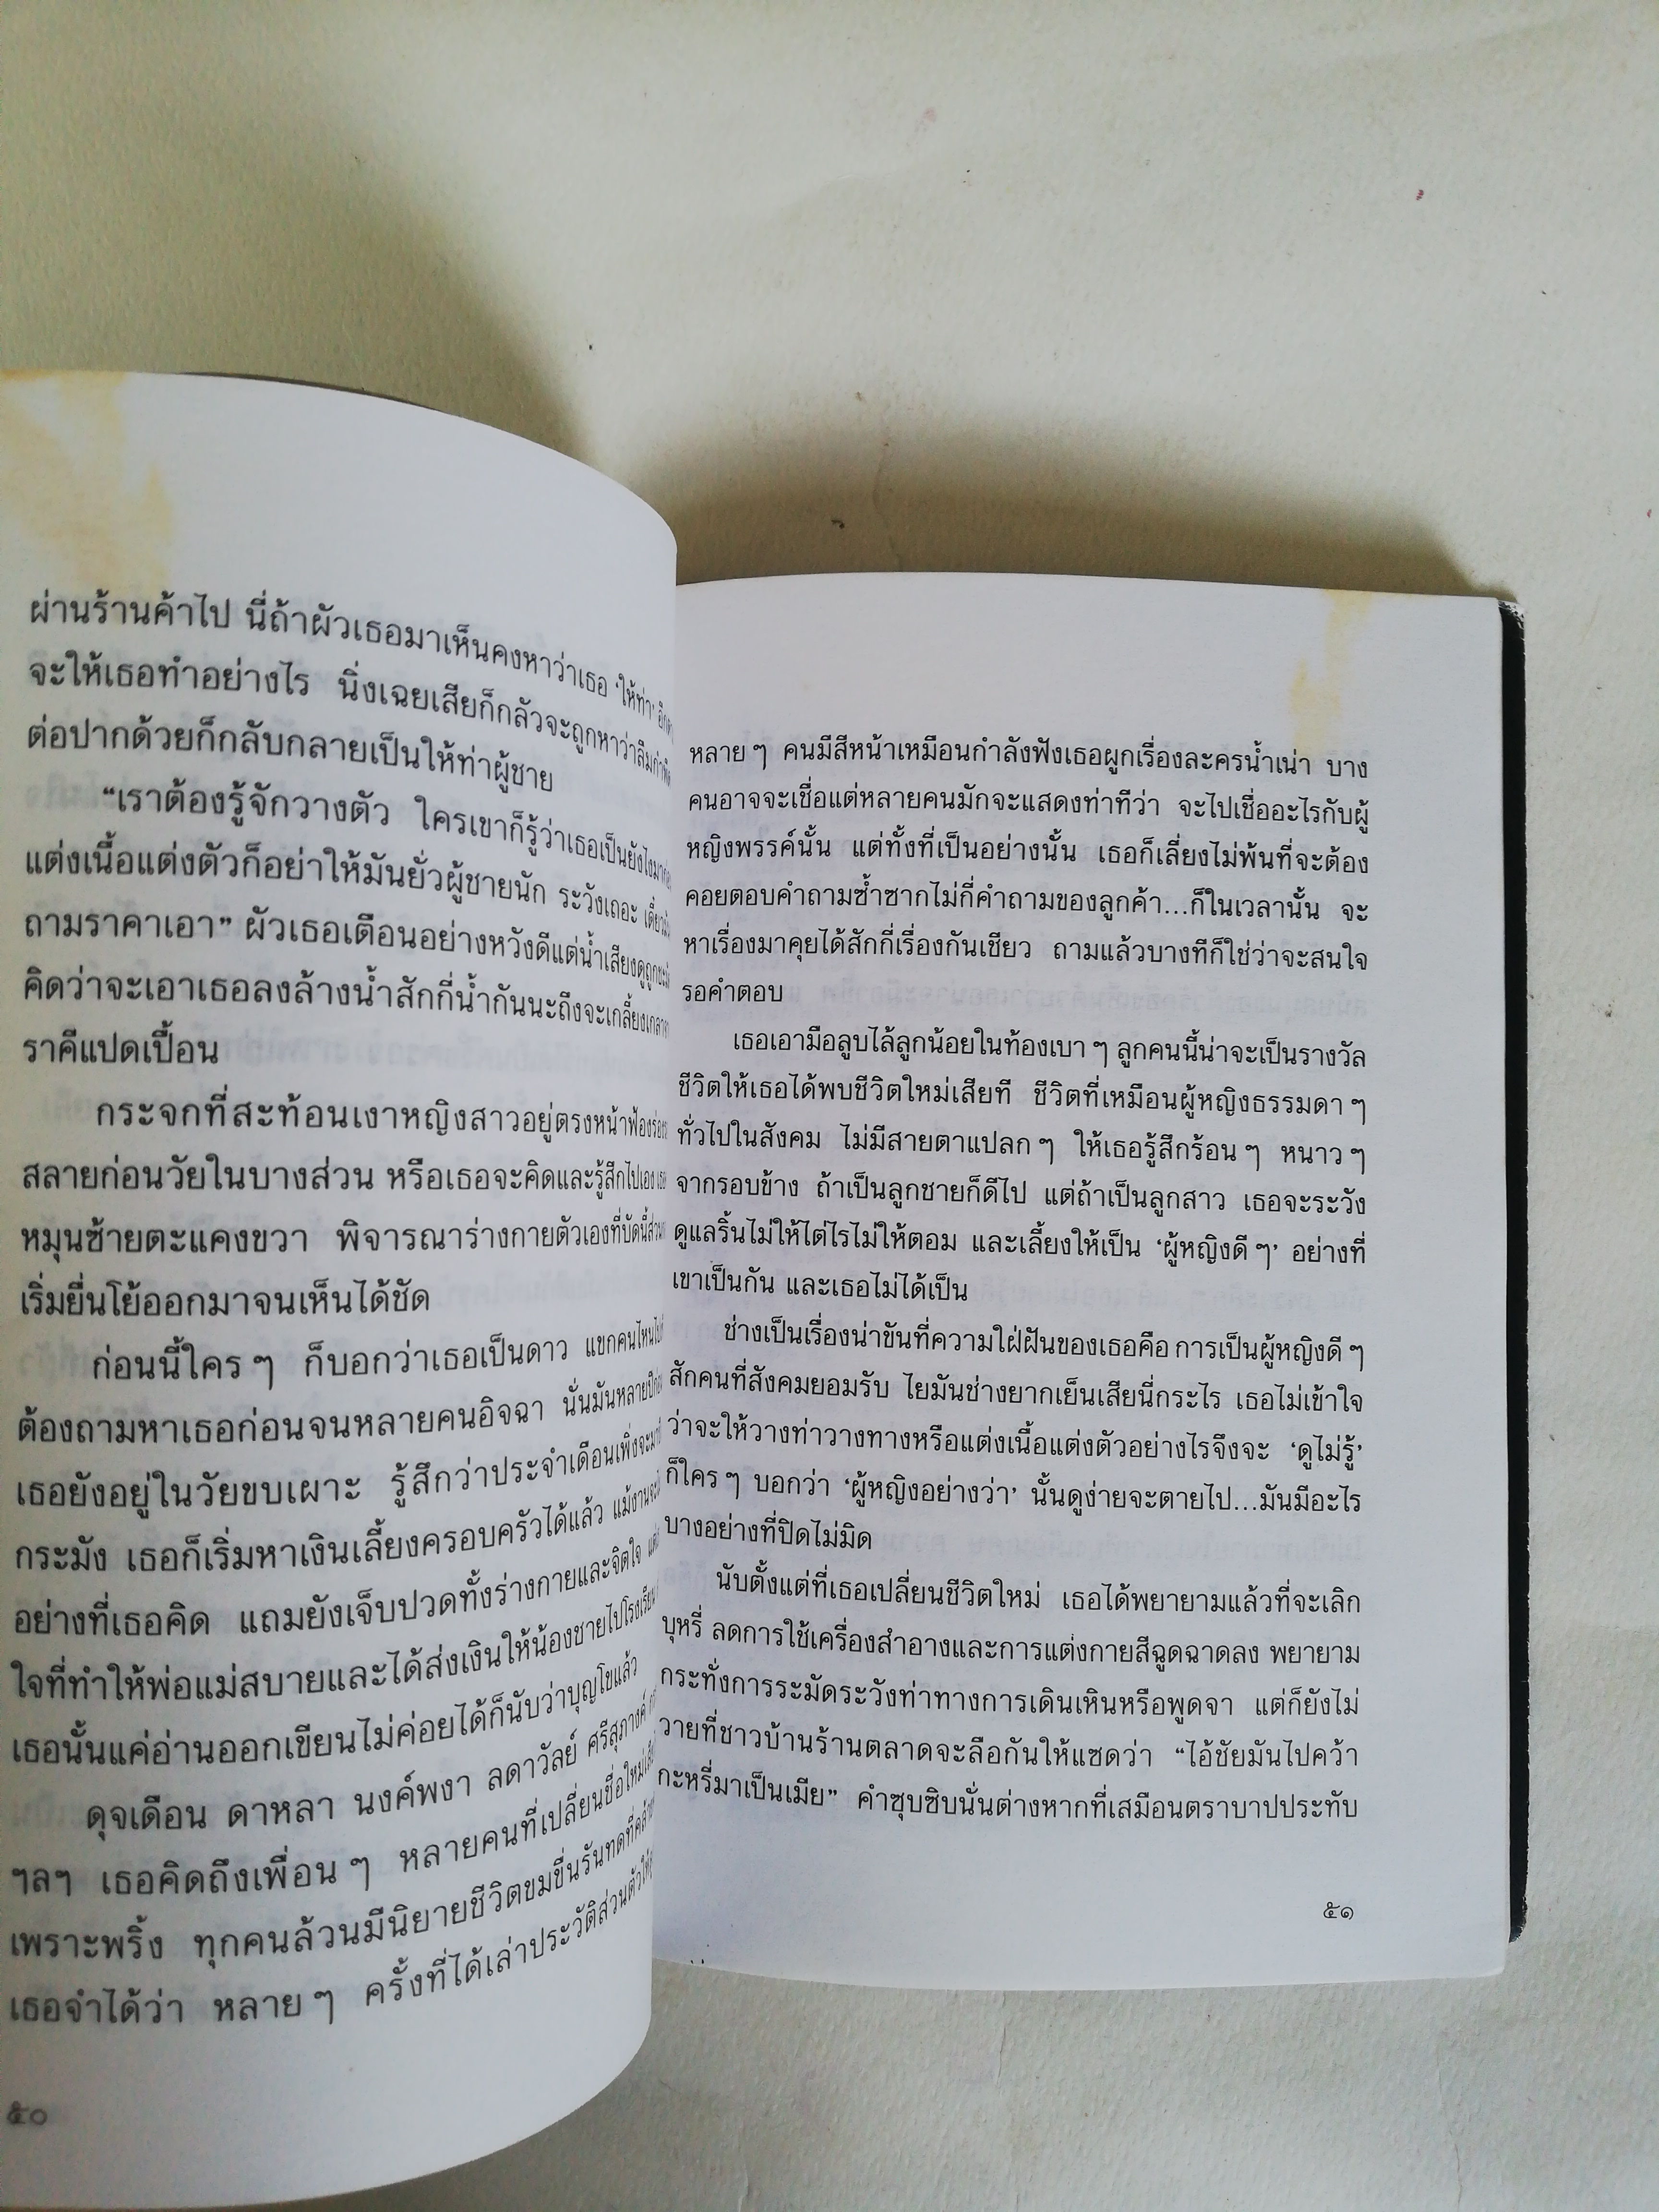 ผ่านร้านค้าไป นี่ถ้าผัวเธอมาเห็นคงหาว่าเธอ ‘ให้ท่า’
จะให้เธอทำอย่างไร นิ่งเฉยเสียก็กลัวจะถูกหาว่าลืมกำพืด
ต่อปากด้วยก็กลับกลายเป็นให้ท่าผู้ชาย
“เราต้องรู้จักวางตัว ใครเขาก็รู้ว่าเธอเป็นยังไงมาก่อน
แต่งเนื้อแต่งตัวก็อย่าให้มันยั่วผู้ชายนัก ระวังเถอะ
ถามราคาเอา” ผัวเธอเตือนอย่างหวังดีแต่น้ำเสียงดูถูก
คิดว่าจะเอาเธอลงล้างน้ำสักกี่น้ำกันนะถึงจะเกลี้ยงเกลา
ราคีแปดเปื้อน
กระจกที่สะท้อนเงาหญิงสาวอยู่ตรงหน้าฟ้อง
สลายก่อนวัยในบางส่วน หรือเธอจะคิดและรู้สึกไปเอง
หมุนซ้ายตะแคงขวา พิจารณาร่างกายตัวเองที่บัดนี้
เริ่มยื่นโย้ออกมาจนเห็นได้ชัด
ก่อนนี้ใคร ๆ ก็บอกว่าเธอเป็นดาว แขกคนไหน
ต้องถามหาเธอก่อนจนหลายคนอิจฉา นั่นมันหลายปี
เธอยังอยู่ในวัยขบเผาะ รู้สึกว่าประจำเดือนเพิ่งจะมา
กระมัง เธอก็เริ่มหาเงินเลี้ยงครอบครัวได้แล้ว แม้งาน
อย่างที่เธอคิด แถมยังเจ็บปวดทั้งร่างกายและจิตใจ
ใจที่ทำให้พ่อแม่สบายและได้ส่งเงินให้น้องชายไปโรงเรียน
เธอนั้นแค่อ่านออกเขียนไม่ค่อยได้ก็นับว่าบุญโขแล้ว
ดุจเดือน ดาหลา นงค์พงา ลดาวัลย์ ศรีสุภางค์
ฯลฯ เธอคิดถึงเพื่อน ๆ หลายคนที่เปลี่ยนชื่อใหม่
เพราะพริ้ง ทุกคนล้วนมีนิยายชีวิตขมขื่นรันทด
เธอจำได้ว่า หลาย ๆ ครั้งที่ได้เล่าประวัติส่วนตัว
๕๐
หลาย ๆ คนมีสีหน้าเหมือนกำลังฟังเธอผูกเรื่องละครน้ำเน่า บาง
คนอาจจะเชื่อแต่หลายคนมักจะแสดงท่าทีว่า จะไปเชื่ออะไรกับผู้
หญิงพรรค์นั้น แต่ทั้งที่เป็นอย่างนั้น เธอก็เลี่ยงไม่พ้นที่จะต้อง
คอยตอบคำถามซ้ำซากไม่กี่คำถามของลูกค้า...ก็ในเวลานั้น จะ
หาเรื่องมาคุยได้สักกี่เรื่องกันเชียว ถามแล้วบางทีก็ใช่ว่าจะสนใจ
รอคำตอบ
เธอเอามือลูบไล้ลูกน้อยในท้องเบา ๆ ลูกคนนี้น่าจะเป็นรางวัล
ชีวิตให้เธอได้พบชีวิตใหม่เสียที ชีวิตที่เหมือนผู้หญิงธรรมดา ๆ
ทั่วไปในสังคม ไม่มีสายตาแปลก ๆ ให้เธอรู้สึกร้อน ๆ หนาว ๆ
จากรอบข้าง ถ้าเป็นลูกชายก็ดีไป แต่ถ้าเป็นลูกสาว เธอจะระวัง
ดูแลริ้นไม่ให้ไต่ไรไม่ให้ตอม และเลี้ยงให้เป็น ‘ผู้หญิงดี ๆ’ อย่างที่
เขาเป็นกัน และเธอไม่ได้เป็น
ช่างเป็นเรื่องน่าขันที่ความใฝ่ฝันของเธอคือ การเป็นผู้หญิงดี ๆ
สักคนที่สังคมยอมรับ ไยมันช่างยากเย็นเสียนี่กระไร เธอไม่เข้าใจ
ว่าจะให้วางท่าวางทางหรือแต่งเนื้อแต่งตัวอย่างไรจึงจะ ‘ดูไม่รู้’
ก็ใคร ๆ บอกว่า ‘ผู้หญิงอย่างว่า’ นั้นดูง่ายจะตายไป...มันมีอะไร
บางอย่างที่ปิดไม่มิด
นับตั้งแต่ที่เธอเปลี่ยนชีวิตใหม่ เธอได้พยายามแล้วที่จะเลิก
บุหรี่ ลดการใช้เครื่องสำอางและการแต่งกายสีฉูดฉาดลง พยายาม
กระทั่งการระมัดระวังท่าทางการเดินเหินหรือพูดจา แต่ก็ยังไม่
วายที่ชาวบ้านร้านตลาดจะลือกันให้แซดว่า “ไอ้ชัยมันไปคว้า
กะหรี่มาเป็นเมีย” คำซุบซิบนั่นต่างหากที่เสมือนตราบาปประทับ
๕๑